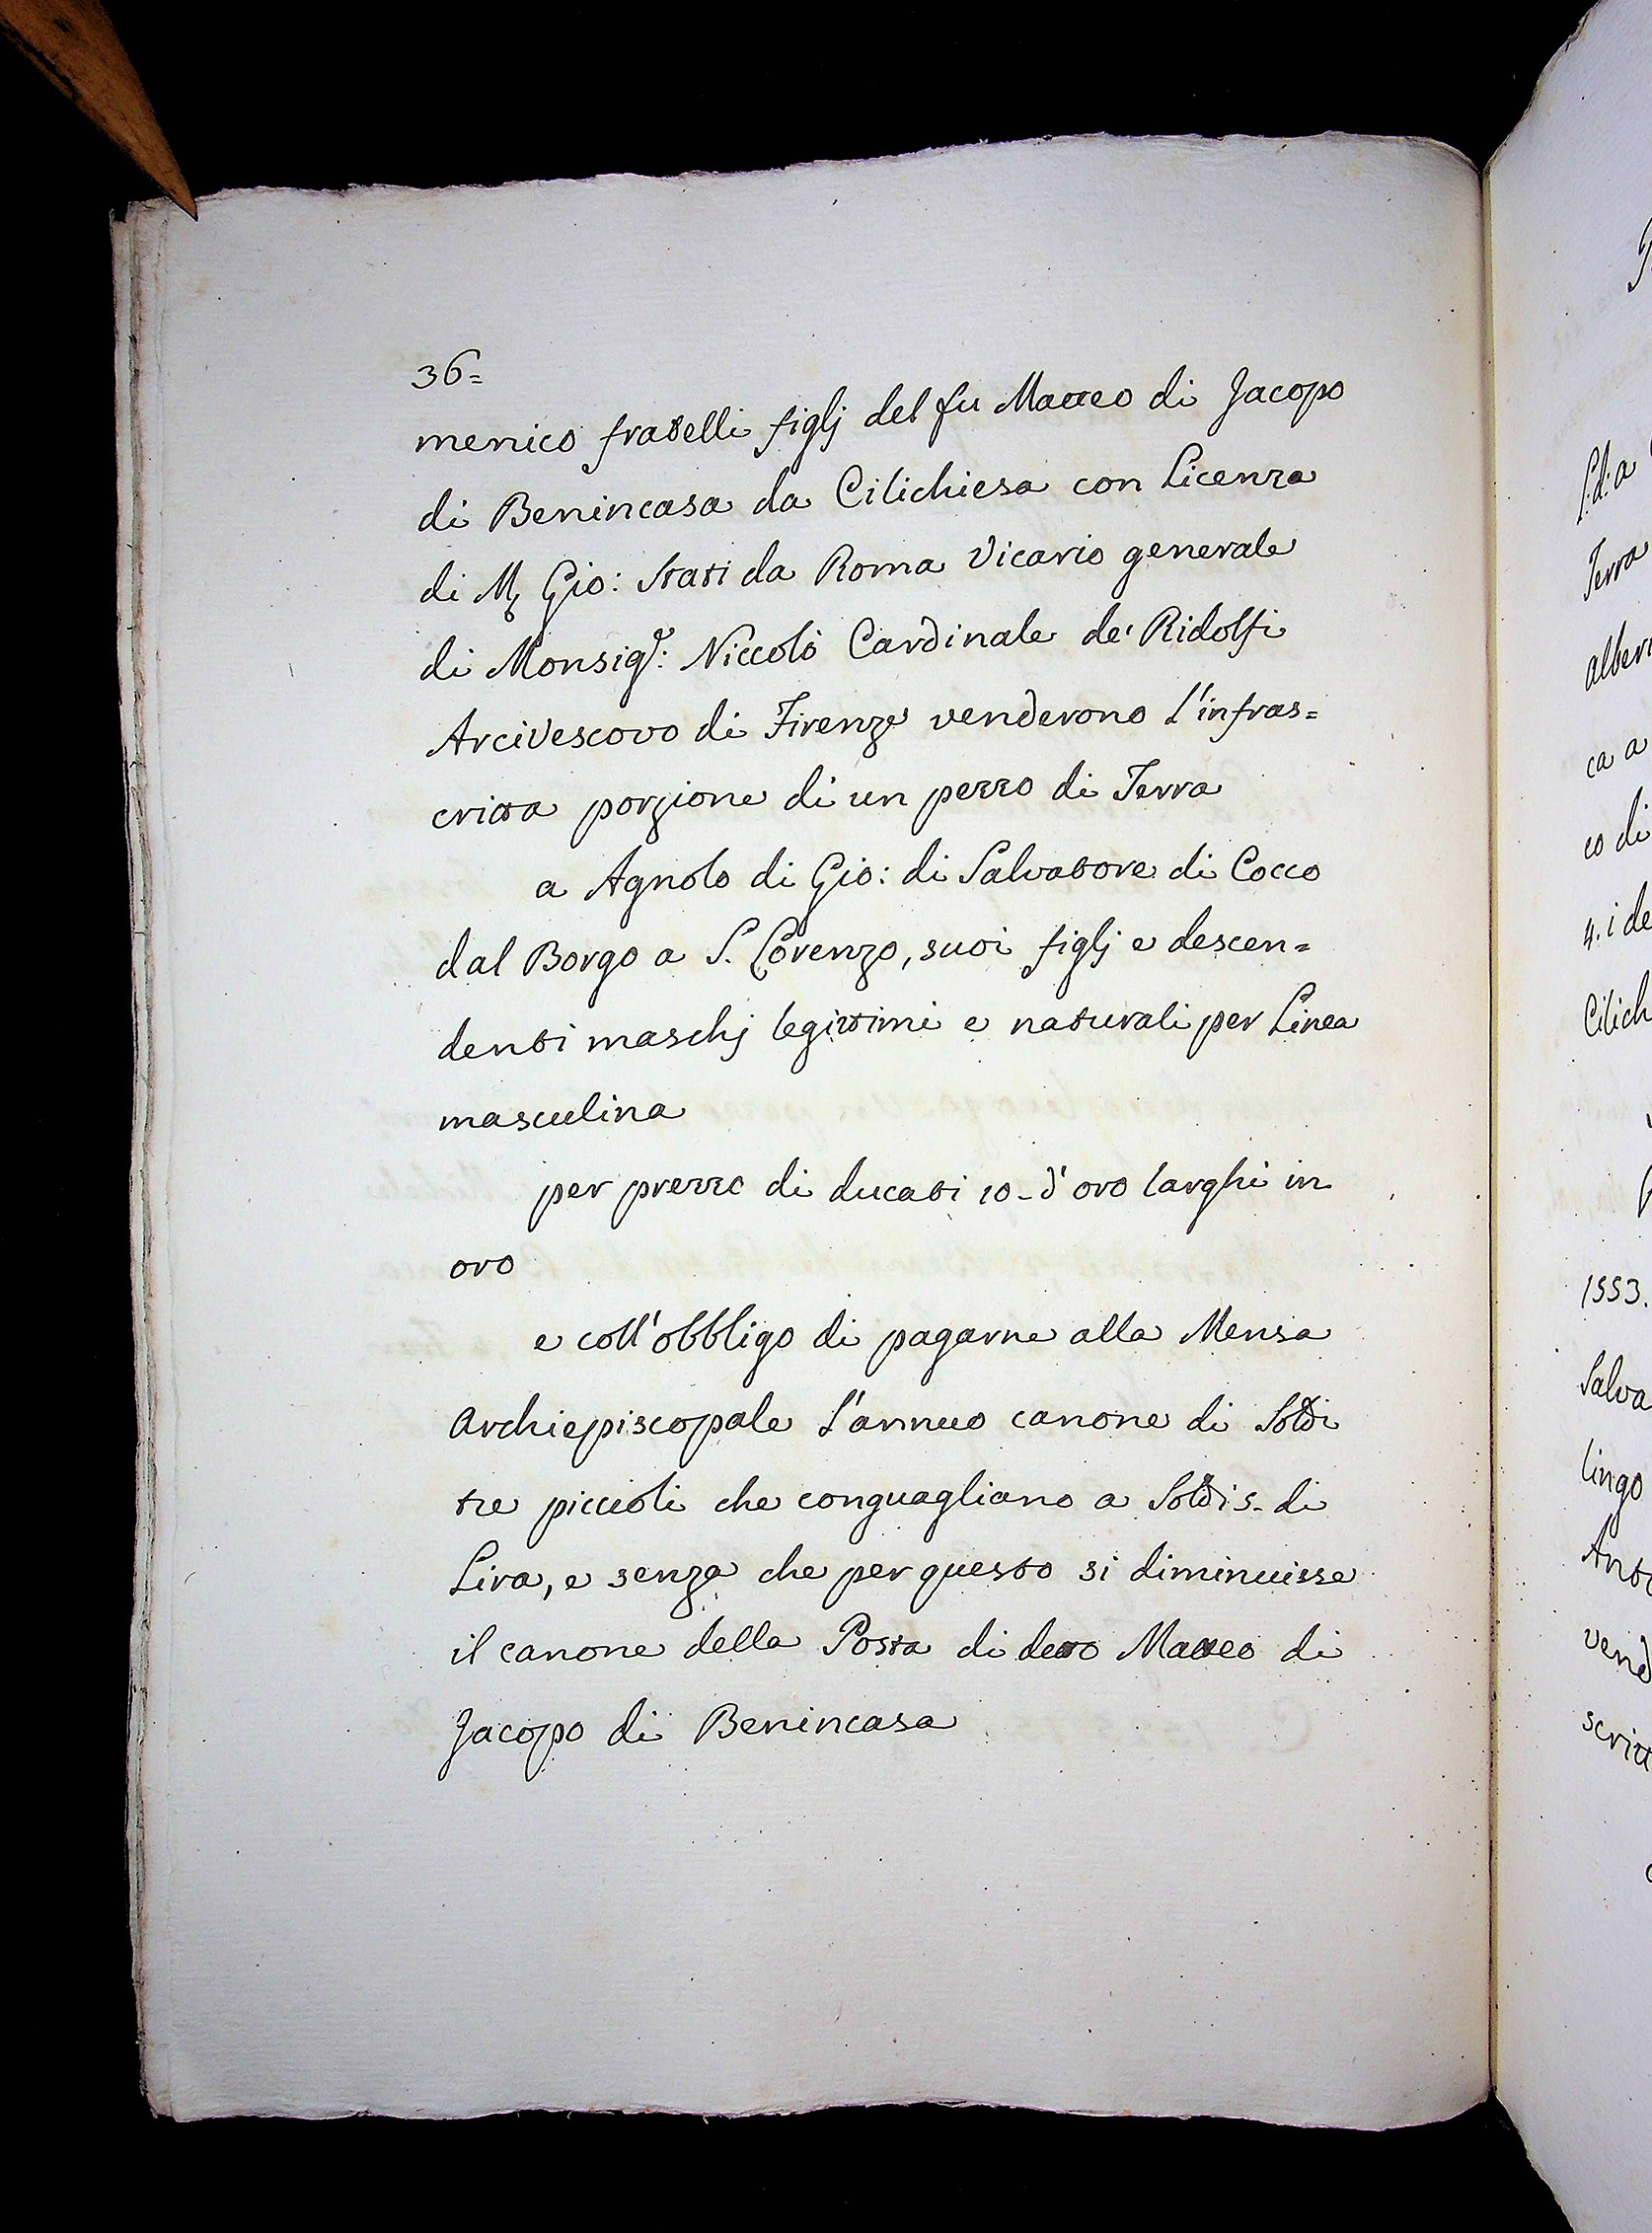 36=
menico fratelli figlj del fu Matteo di Jacopo
di Benincasa da Cilichiesa con Licenza
di M. Gio: Stati da Roma Vicario generale
di Monsigr.: Niccolò Cardinale de' Ridolfi
Arcivescovo di Firenze venderono l'infras=
critta porzione di un pezzo di Terra
a Agnolo di Gio: di Salvatore di Cocco
dal Borgo a S. Lorenzo, suoi figlj e descen=
denti maschj legittimi e naturali per Linea
masculina
per prezzo di ducati 10- d'oro larghi in
oro
e coll'obbligo di pagarne alla Mensa
Archiepiscopale l'annuo canone di Soldi
tre piccioli che conguagliano a Soldi 5- di
Lira, e senza che per questo si diminuisse
il canone della Posta di detto Matteo di
Jacopo di Benincasa
Terra
ca a
co di
4. i de
Cilich
1553.
Salva
lingo
vend
scritt